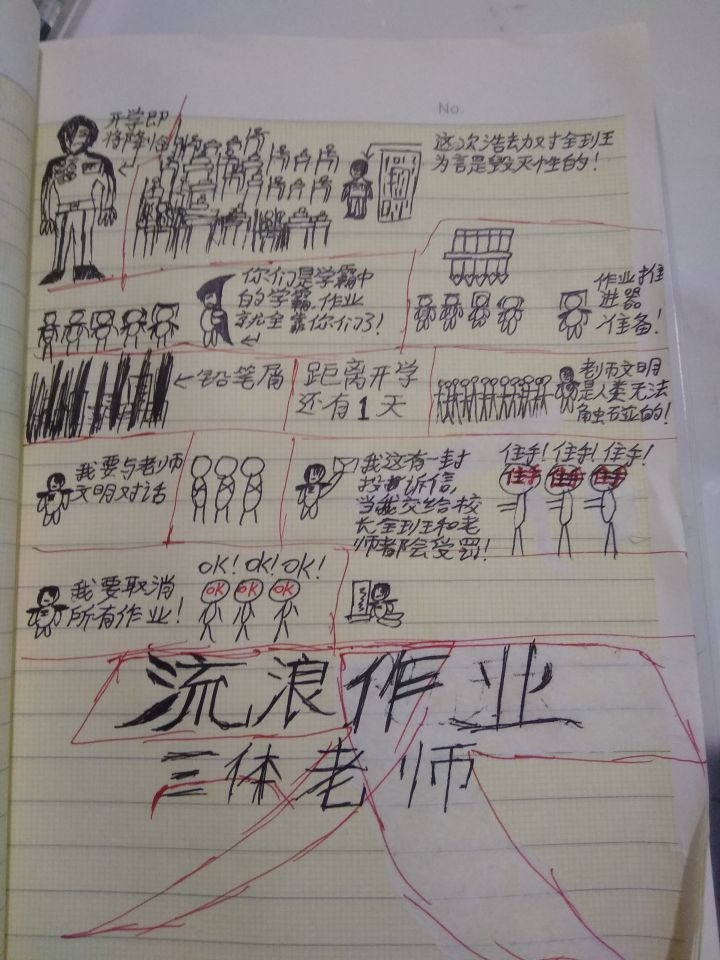 No.
开学即
将降临
这次浩劫对全班
为言是毁灭性的!
你们是学霸中
的学霸,作业
就全靠你们了!
作业推
进器
准备!
铅笔屑
距离开学
还有1天
老师文明
是人类无法
触碰的!
我要与老师
文明对话
我这有一封
投诉信,
当我交给校
长全到班和老
师都会受罚!
住手!住手!住手!
住手 住手 住手
我要取消
所有作业!
OK!OK!OK!
OK OK OK
流浪作业
三体老师